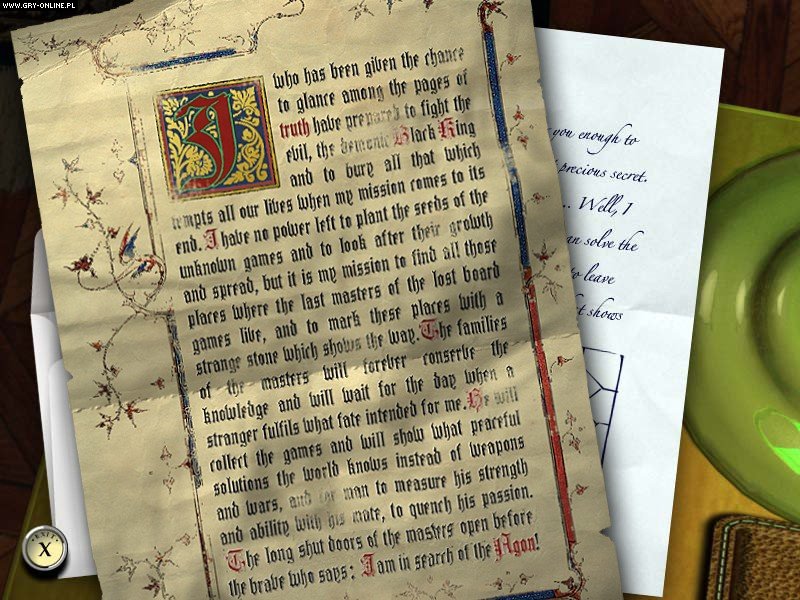 WWW.GRY-ONLINE.PL
I who has been given the chance
to glance among the pages of
truth have prepared to fight the
evil, the demonic Black King
and to bury all that which
tempts all our lives when my mission comes to its
end. I have no power left to plant the seeds of the
unknown games and to look after their growth
and spread, but it is my mission to find all those
places where the last masters of the lost board
games live, and to mark these places with a
strange stone which shows the way. The families
of the masters will forever conserve the
knowledge and will wait for the day when a
stranger fulfils what fate intended for me. He will
collect the games and will show what peaceful
solutions the world knows instead of weapons
and wars, and for man to measure his strength
and ability with his mate, to quench his passion.
The long shut doors of the masters open before
the brave who says: I am in search of the Agon!
you enough to
precious secret.
... Well, I
can solve the
to leave
shows
EXIT
X